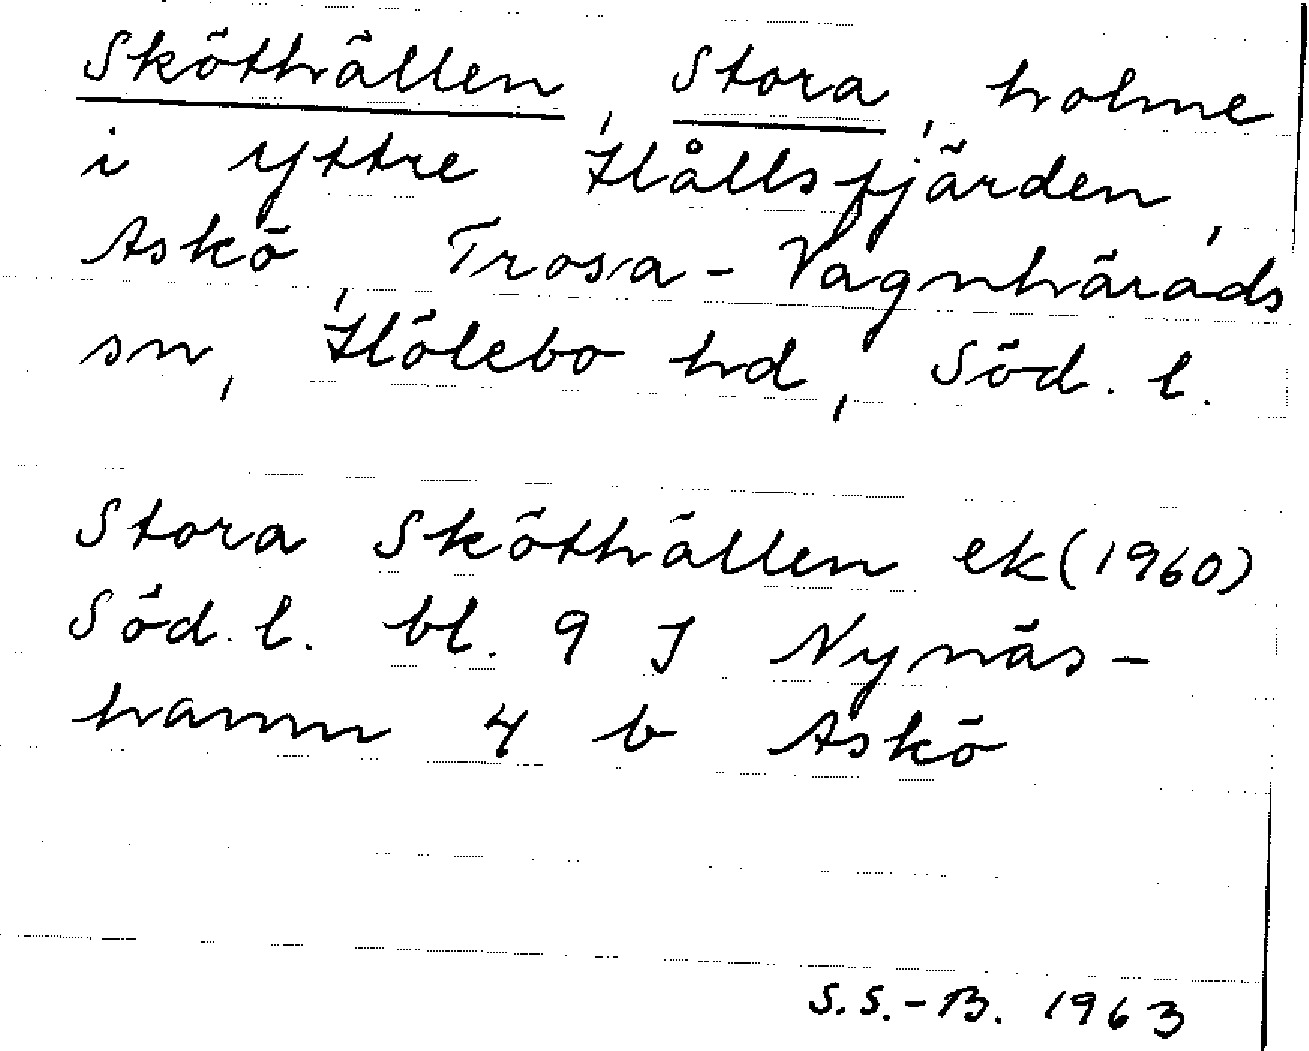 Sköthällen, Stora, holme
i yttre Hållsfjärden,
Askö, Trosa-Vagnhärads
sn, Hölebo hd, Söd. l.
Stora Sköthällen ek (1960)
Söd. l. bl. 9 J Nynäs-
hamn 4 b Askö
S.S.-B. 1963